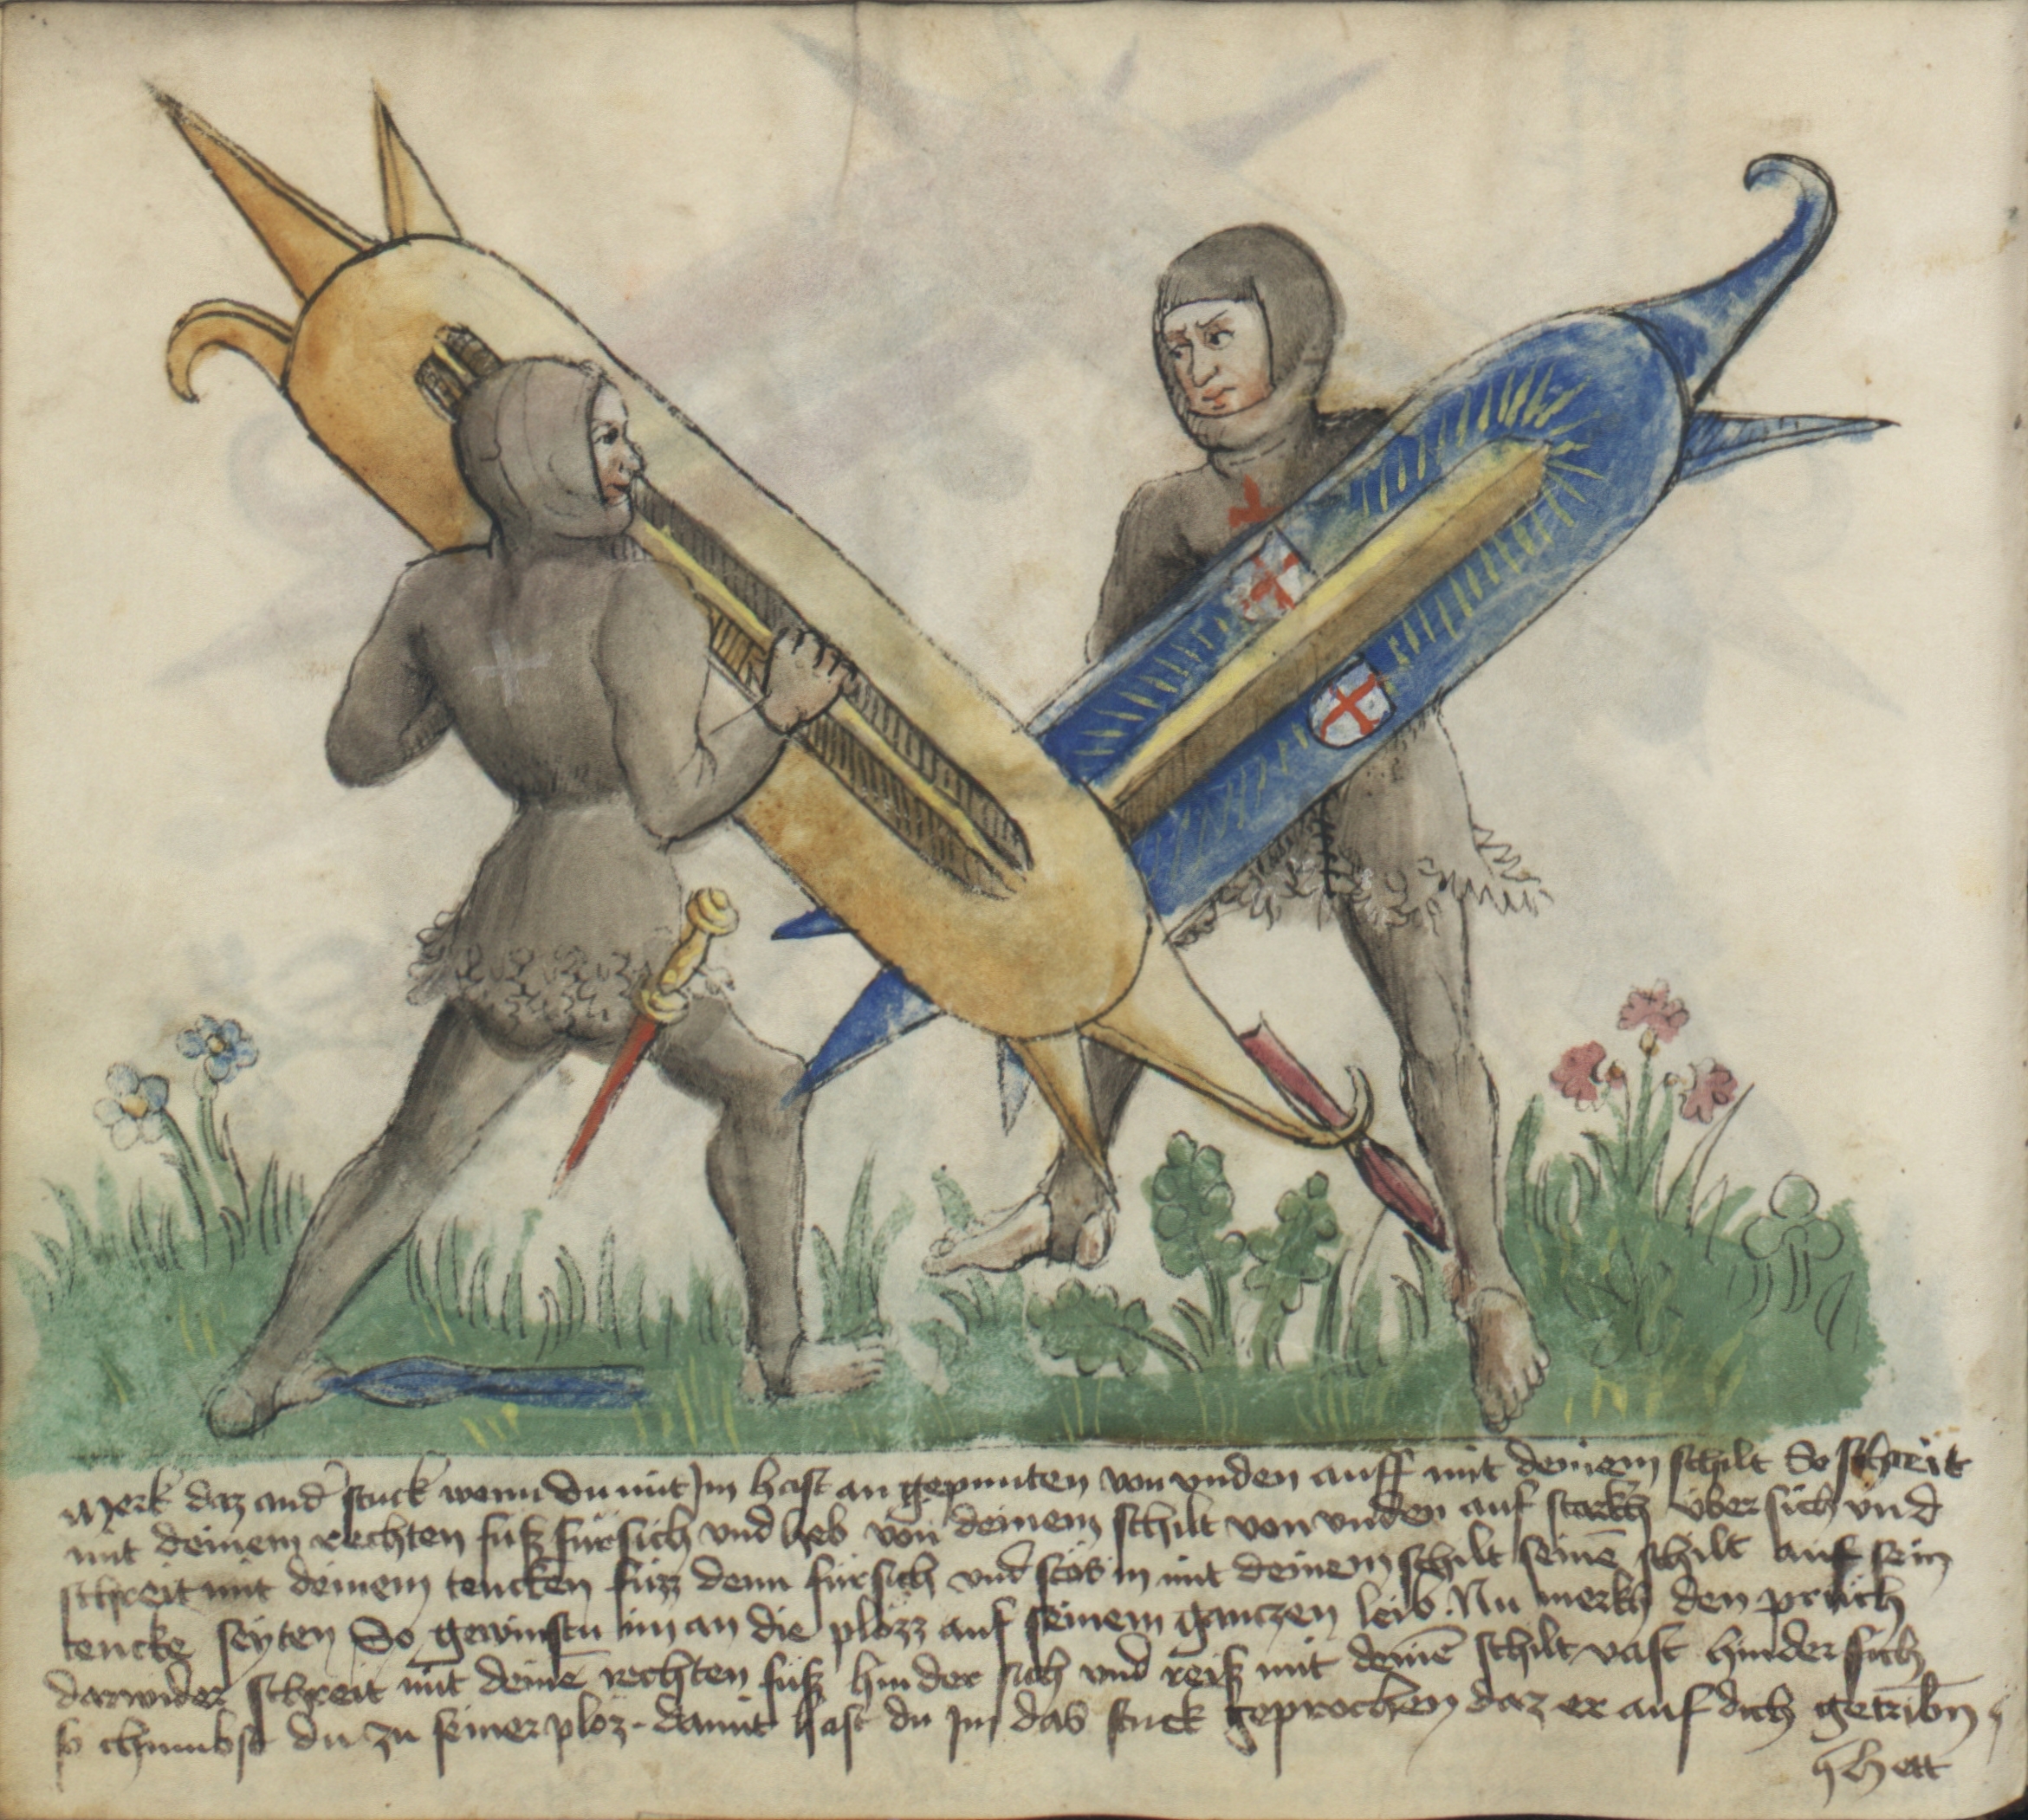 Merk daz and stuck wenn du mit Im hast an gepunten von vnden auff mit deinem schilt So schreit
mit deinem rechten fuß fürsich vnd heb von deinem schilt von vnden auf starkh vber sich vnd
schreit mit deinem tencken fuzz denn fürsich vnd stös in mit deinem schilt seinē schilt auf sein
tencke seyten So gewinstu im an die plözz auf seinem ganczen leib. Nu merkh den pruch
darwider schreit mit deinē rechten fuß hinder sich vnd reiß mit deinē schilt vast hinder sich
so chumbst du zu seiner plöz damit hast du Im das stuck geprochen daz er auf dich getribn
hett